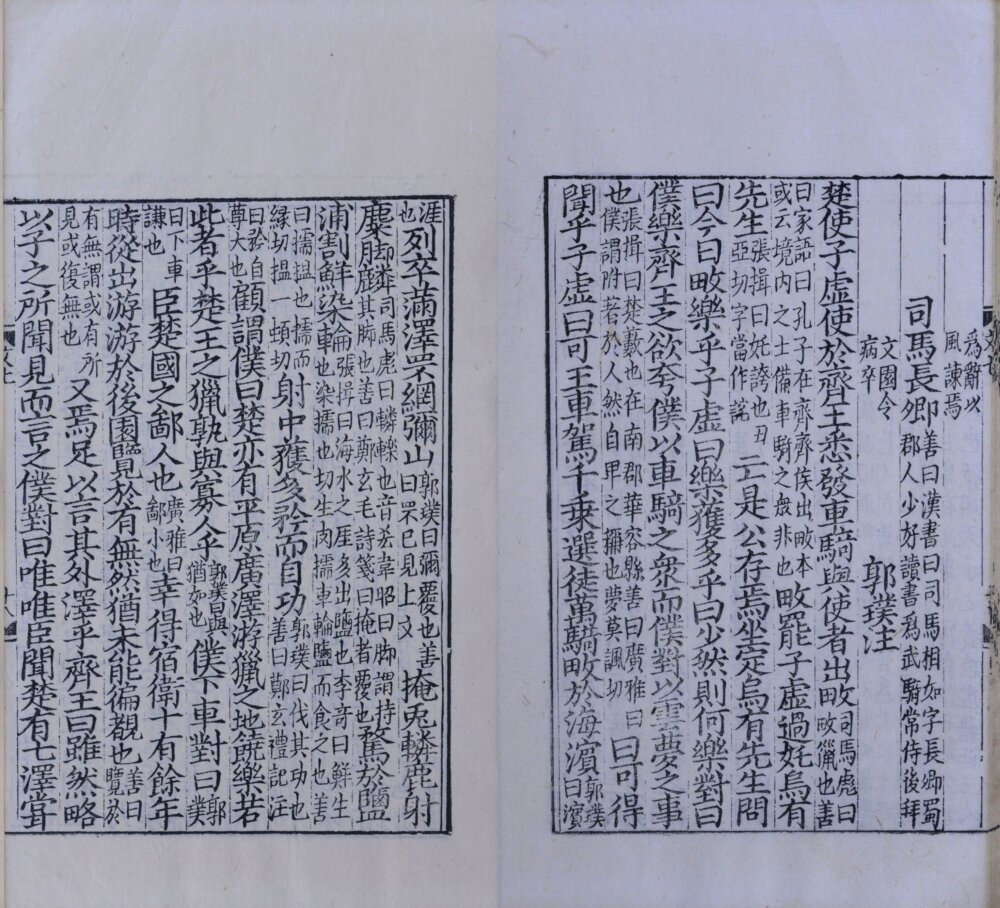 爲辭以風諫焉
司馬長卿善曰漢書曰司馬相如字長卿蜀郡人少好讀書爲武騎常侍後拜
文園令病卒 郭璞注
楚使子虛使於齊王悉發車騎與使者出畋司馬彪曰畋獵也善
曰家語曰孔子在齊齊侯出畋本或云境内之士備車騎之衆非也畋罷子虛過奼烏有
先生張揖曰奼誇也丑亞切字當作詫亡是公存焉坐定烏有先生問
曰今日畋樂乎子虛曰樂獲多乎曰少然則何樂對曰
僕樂齊王之欲夸僕以車騎之衆而僕對以雲夢之事
也張揖曰楚藪也在南郡華容縣善曰廣雅曰僕謂附著於人然自卑之稱也夢莫諷切曰可得
聞乎子虛曰可王車駕千乗選徒萬騎畋於海濱郭璞曰濱
涯也列卒滿澤罘網彌山郭璞曰彌覆也善曰罘已見上文掩兎轔鹿射
麋脚麟司馬彪曰轔轢也音吝韋昭曰脚謂持其脚也善曰鄭玄毛詩箋曰掩者覆也騖於鹽
浦割鮮染輪張揖曰海水之厓多出鹽也李奇曰鮮生也染擩也切生肉擩車輪鹽而食之也善
曰擩搵也擩而縁切搵一頓切射中獲多矜而自功郭璞曰伐其功也善曰鄭玄禮記注
曰矜自尊大也顧謂僕曰楚亦有平原廣澤游獵之地饒樂若
此者乎楚王之獵孰與寡人乎郭璞曰與猶如也僕下車對曰郭璞
曰下車謙也臣楚國之鄙人也廣雅曰鄙小也幸得宿衛十有餘年
時從出游游於後園覽於有無然猶未能徧覩也善曰覽於
有無謂或有所見或復無也又焉足以言其外澤乎齊王曰雖然略
以子之所聞見而言之僕對曰唯唯臣聞楚有七澤甞
十八